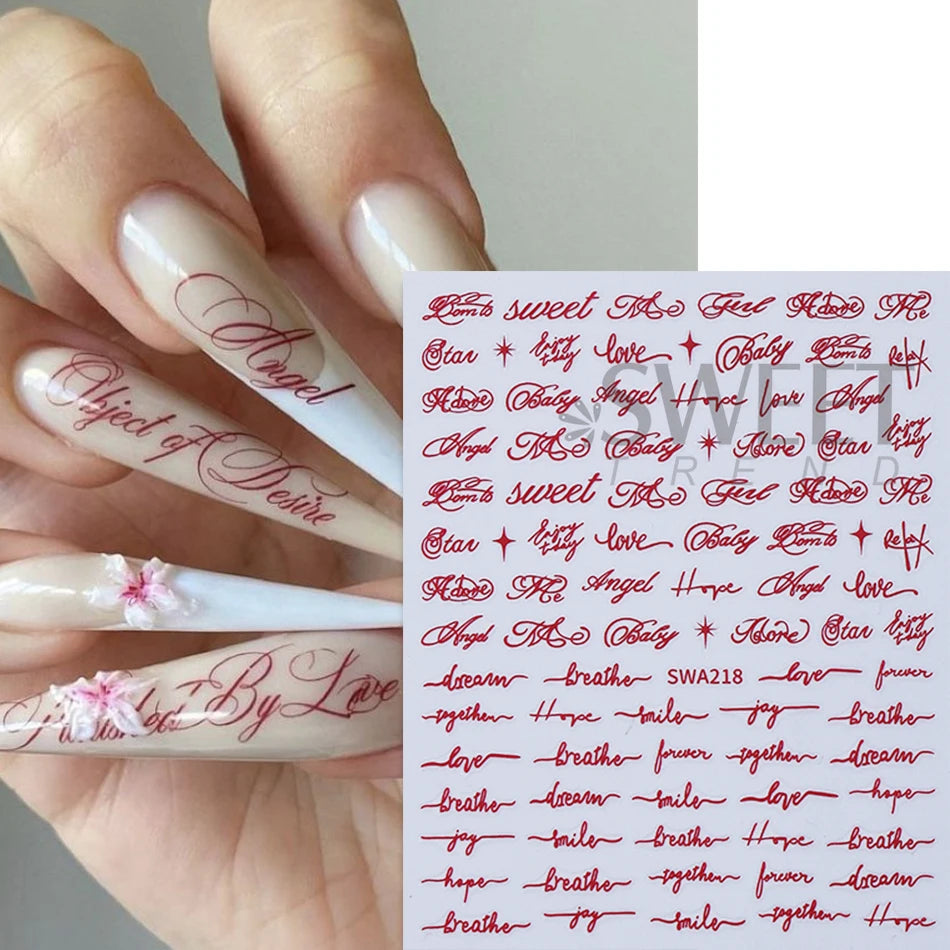 Angel
Object of Desire
By Love
sweet Girl Adore Me
Star Enjoy love Baby Relax
Adore Baby Angel Hope love Angel
SWEET
TREND
Angel Baby Adore Star Enjoy
sweet Girl Adore Me
Star Enjoy love Baby Relax
Adore Me Angel Hope Angel love
Angel Baby Adore Star Enjoy
dream breathe SWA218 love forever
together Hope smile joy breathe
love breathe forever together dream
breathe dream smile love hope
joy smile breathe Hope breathe
hope breathe together forever dream
breathe joy smile together Hope